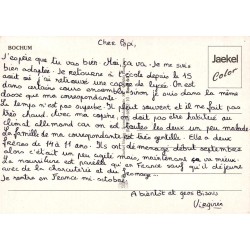 BOCHUM
Cher Papi,
Jaekel
Color
J'espère que tu vas bien. Moi, ça va. Je me suis
bien adaptée. Je retourne à l'école depuis le 15
août où j'ai retrouvé une copine de lycée. On est
dans certains cours ensemble, sinon je suis dans la même
classe que ma correspondante.
Le temps n'est pas superbe. Il pleut souvent et il ne fait pas
très chaud. Avec ma copine, on doit pas être habituée au
climat allemand car on est toutes les deux un peu malade.
La famille de ma correspondante est très gentille. Elle a deux
frères de 14 à 11 ans. Ils ont déménagé début septembre
alors c'était un peu agité mais, maintenant ça va mieux.
La nourriture est pareille qu'en France sauf qu'il déjeune
avec de la charcuterie et du fromage...
Je rentre en France mi-octobre.
A bientôt et gros Bisous
Virginie